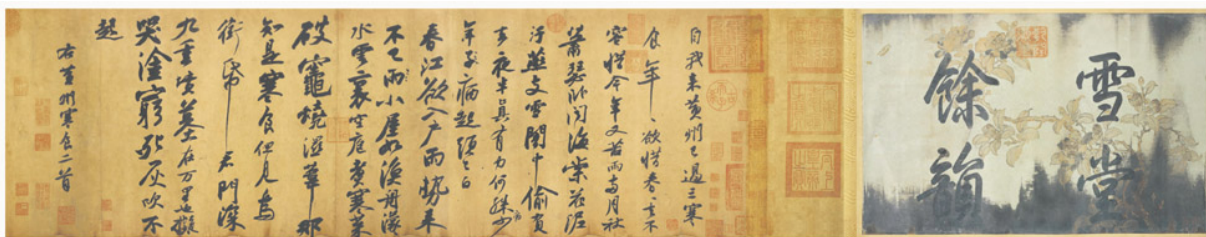 雪堂
餘韻
自我来黃州已過三寒
食年〻欲惜春〻去不
容惜今年又苦雨兩月秋
蕭瑟卧聞海棠花泥
汙燕支雪闇中偷負
去夜半真有力何殊少
年子病起頭已白
春江欲入户雨勢来
不已雨小屋如漁舟濛〻
水雲裏空庖煮寒菜
破竈燒濕葦那
知是寒食但見烏
銜帋君門深
九重墳墓在万里也擬
哭塗窮死灰吹不
起
右黃州寒食二首